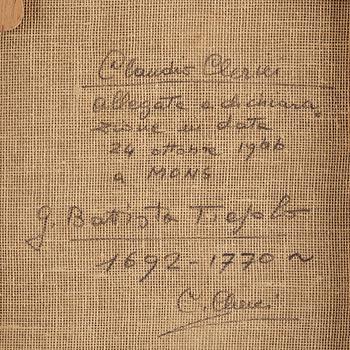 Claudio Clerici
allegate a dichiara.
zione in date
24 ottobre 1966
a MONS
G. Battista Tiepolo
1692-1770 ~
C. Clerici